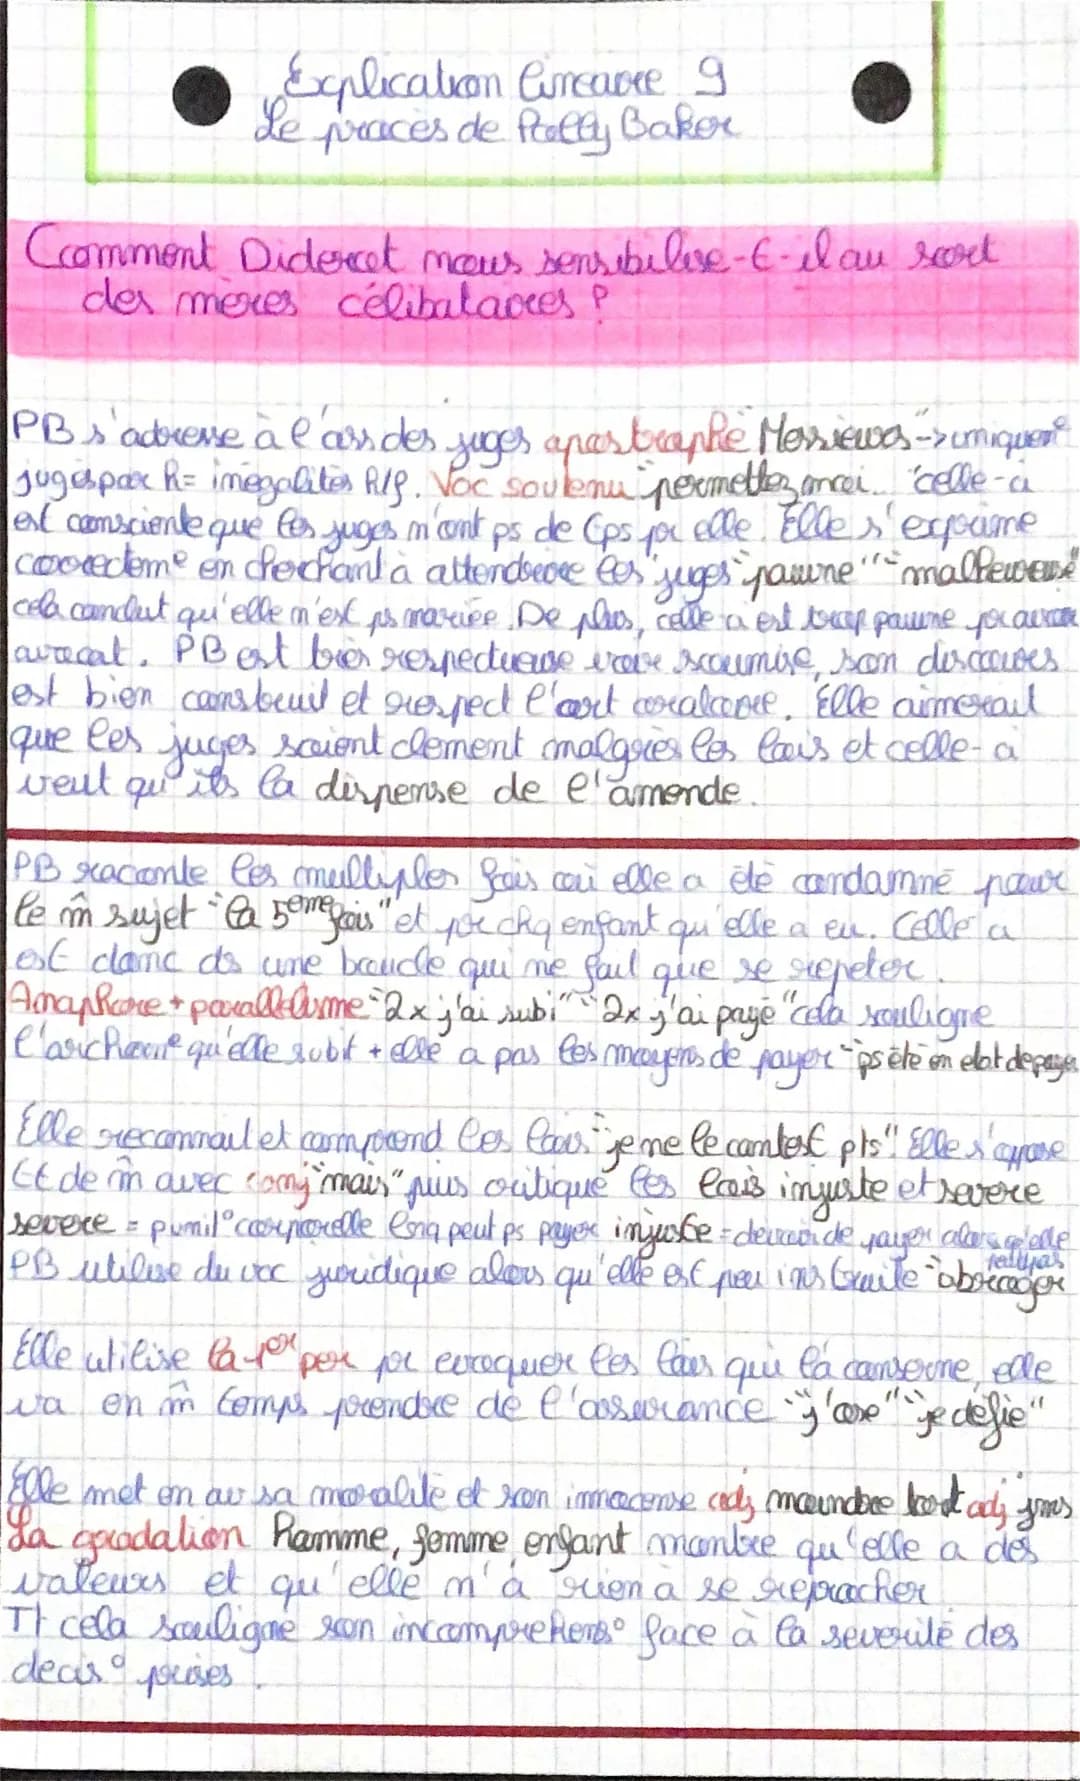 Explication linéaire 9
Le procès de Polly Baker
Comment Diderot nous sensibilise-t-il au sort
des mères célibataires ?
PB s'adresse à l'ass des juges apostraphe "Messieurs" -> uniquemᵉ
jugés par h = inégalités h/f. Voc soutenu "permettez moi..." celle-ci
est consciente que les juges n'ont ps de tps pr elle. Elle s'exprime
correctemᵉ en cherchant à attendrire les juges "pauvre" "malheureuse"
cela conduit qu'elle n'est ps mariée. De plus, celle ci est trop pauvre pr avoir
avocat. PB est très respectueuse voire soumise, son discours
est bien construit et respect l'art oratoire. Elle aimerait
que les juges soient clement malgrès les lois et celle-ci
veut qu'ils la dispense de l'amende.
PB raconte les multiples fois où elle a été condamné pour
le m̂ sujet "la 5ème fois" et pr chq enfant qu'elle a eu. Celle ci
est donc ds une boucle qui ne fait que se repeter.
Anaphore + parallélisme "2x j'ai subi" "2x j'ai payé" cela souligne
l'archarnᵉ qu'elle subit + elle a pas les moyens de payer "ps été en etat de payer
Elle reconnait et comprend les lois "je ne le contest pts". Elle s'oppose
tt de m̂ avec conj "mais" puis critique les lois injuste et severe
severe = punit° corporelle lorsq peut ps payer injuste = devoir de payer alors qu'elle
peut pas
PB utilise du voc juridique alors qu'elle est peu instruite "abroger
Elle utilise la 1ᵉʳ per pr evoquer les lois qui la conserne, elle
va en m̂ temps prendre de l'assurance "j'ose" "je défie"
Elle met en av sa moralité et son innocense adj moindre tort adj jms
La gradation homme, femme, enfant montre qu'elle a des
valeurs et qu'elle n'a rien à se reprocher
Tt cela souligne son incomprehens° face à la severité des
decis° prises.